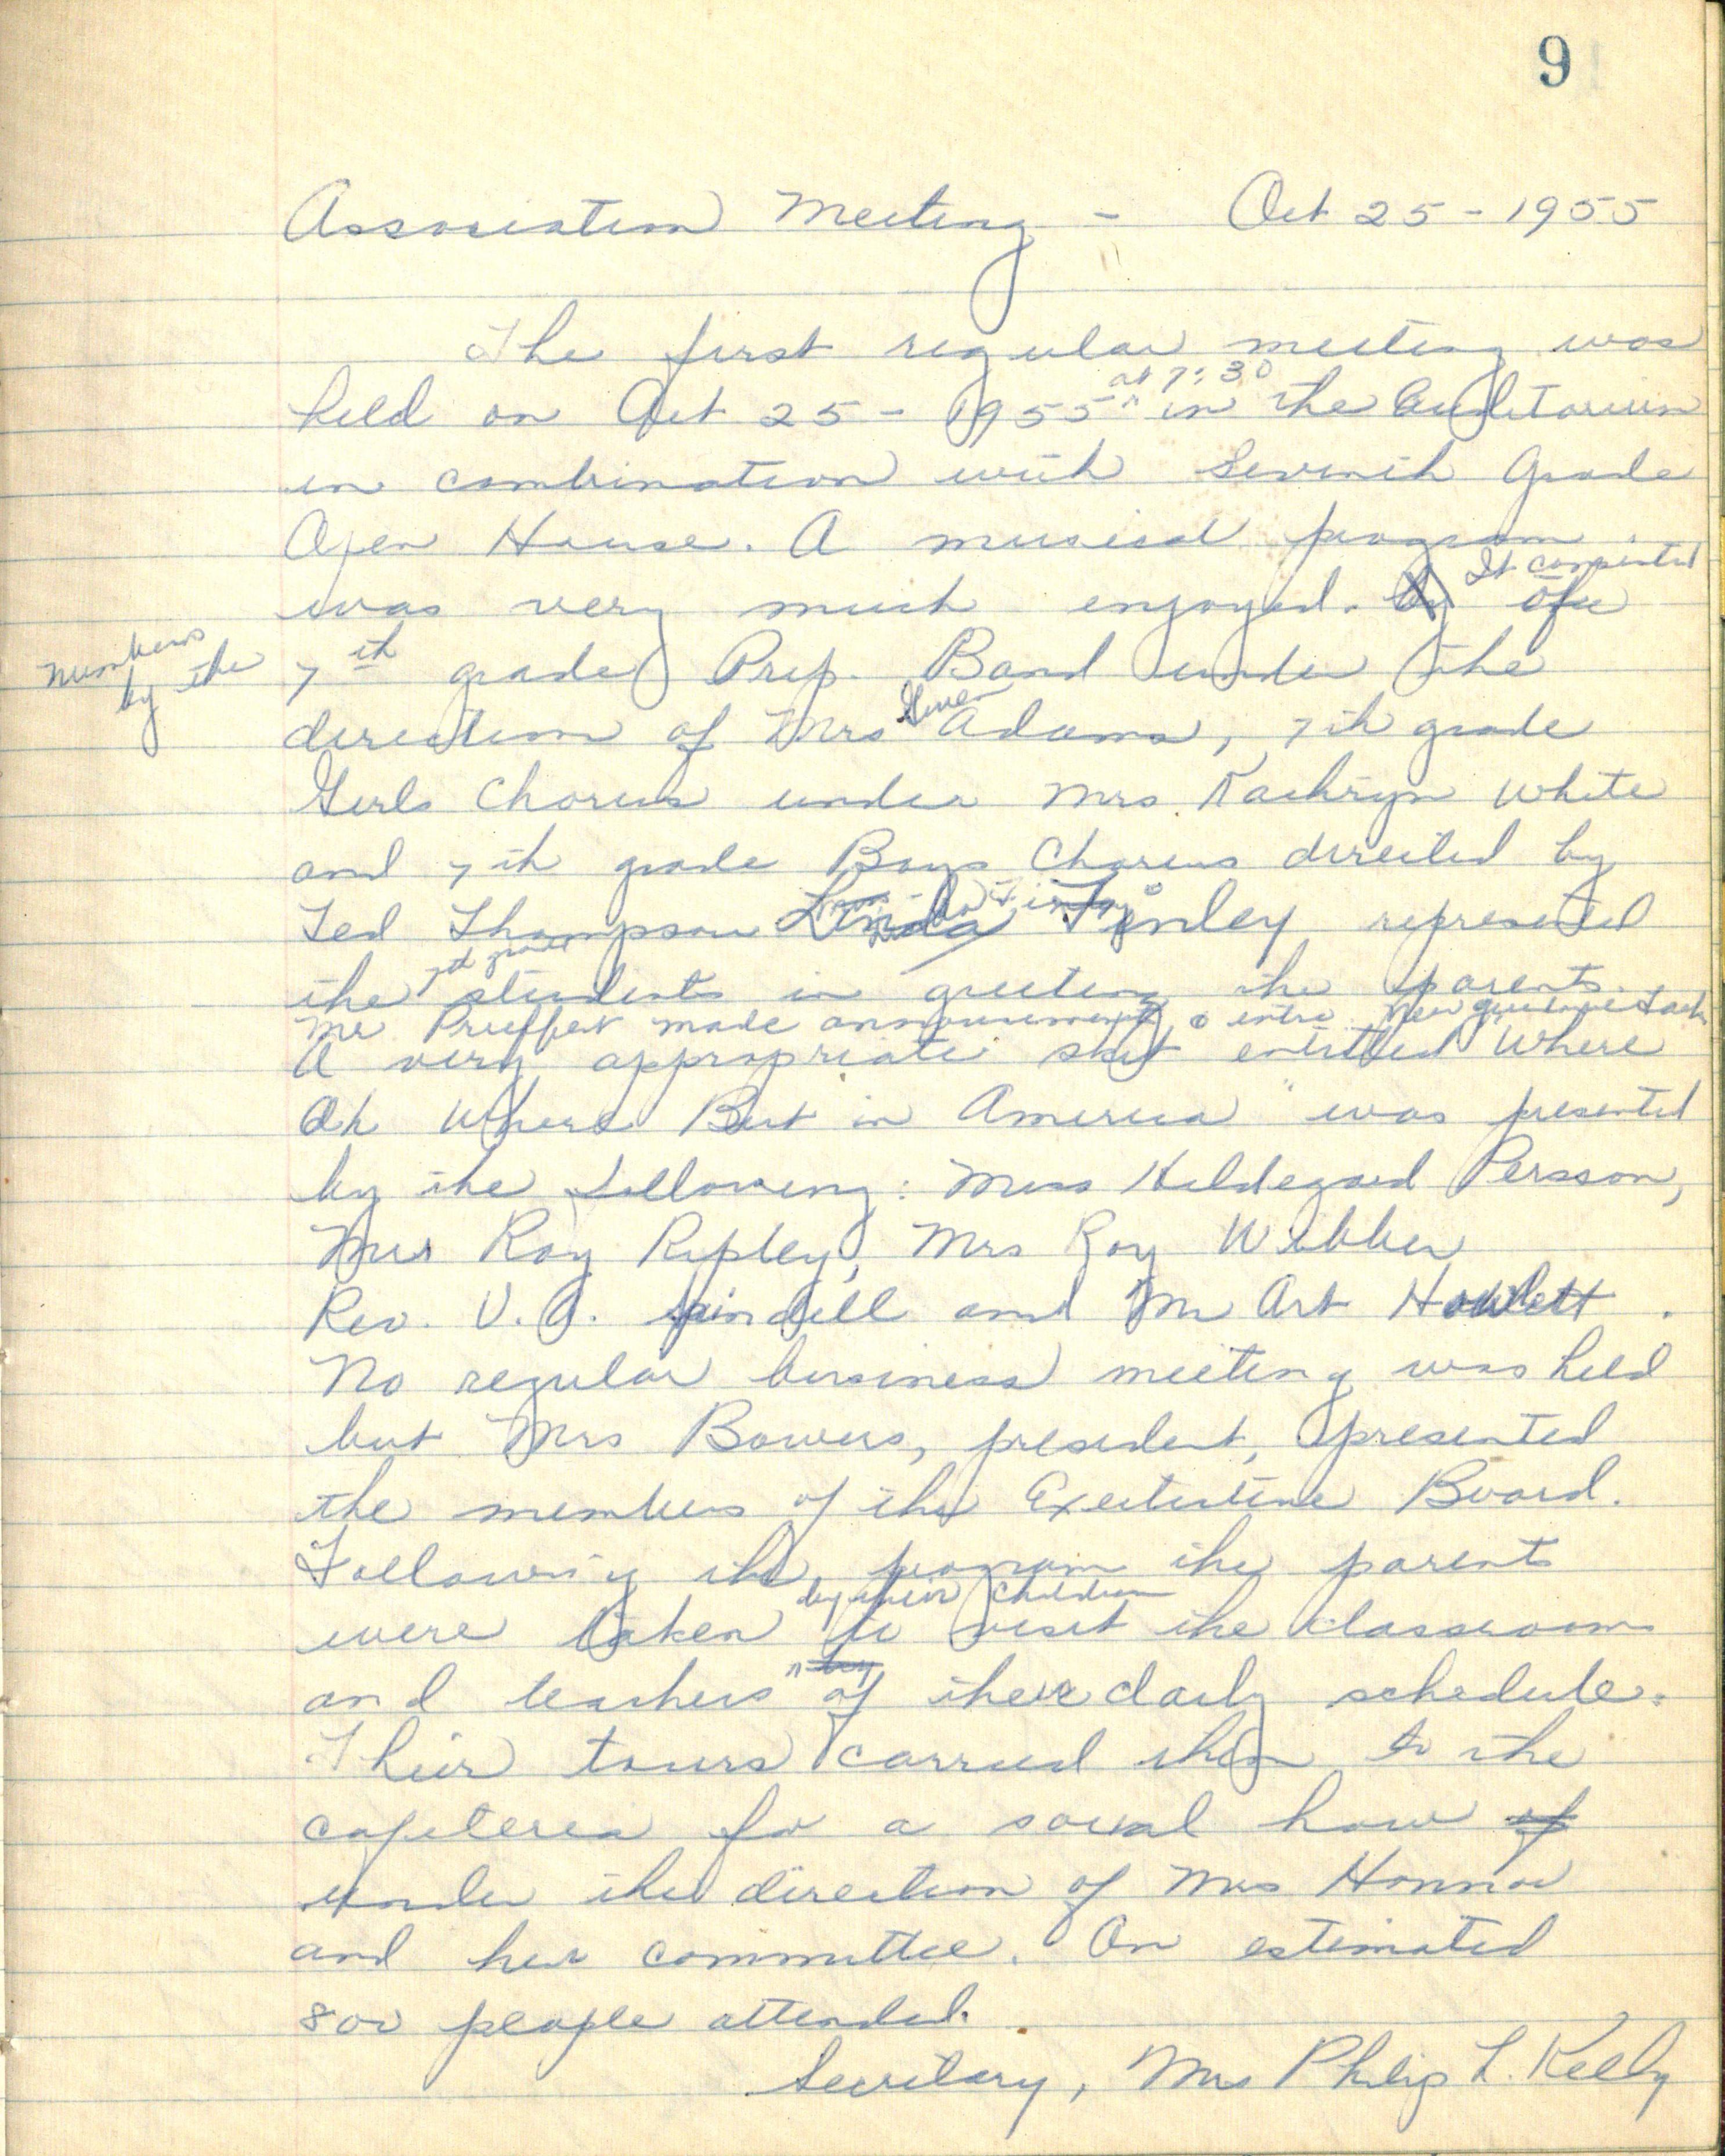 9
Association Meeting - Oct 25 - 1955
The first regular meeting was
at 7:30
held on Oct 25 - 1955 in the Auditorium
in combination with Seventh Grade
Open House. A musical program
It consisted
was very much enjoyed. by of
numbers
by the
7th grade Prep. Band under the
direction of Mrs Adams, 7th grade
Girls Chorus under Mrs. Kathryn White
and 7th grade Boys Chorus directed by
Ted Thompson Linda Finley represented
7th grade
the students in greeting the parents.
Mr made announcements & intro. new
A very appropriate skit entitled "Where
Oh Where But in America" was presented
by the following: Miss Hildegard Persson,
Mrs Roy Ripley, Mrs Roy Webber
Rev. V. A. and Mr Art Howlett.
No regular business meeting was held
but Mrs Bowers, president, presented
the members of the Executive Board.
Following the program the parents
by their children
were taken to visit the classrooms
and teachers by of their daily schedule.
Their tours carried them to the
cafeteria for a social hour of
under the direction of Mrs Honnor
and her committee. An estimated
800 people attended.
Secretary, Mrs Philip L. Kelly